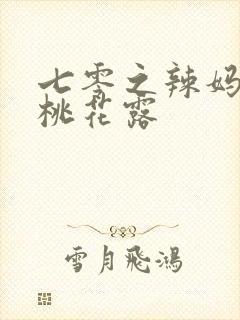 七零之辣妈
桃花露
雪月飛鴻